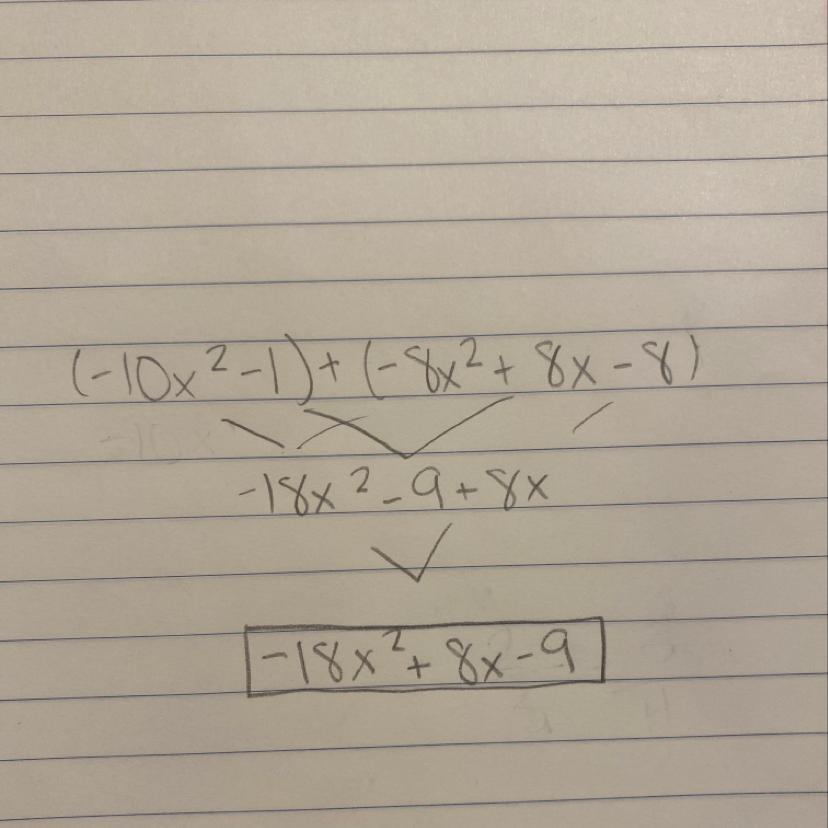 (-10x²-1)+(-8x²+ 8x-8)
-18x²-9+8x
-18x²+ 8x-9